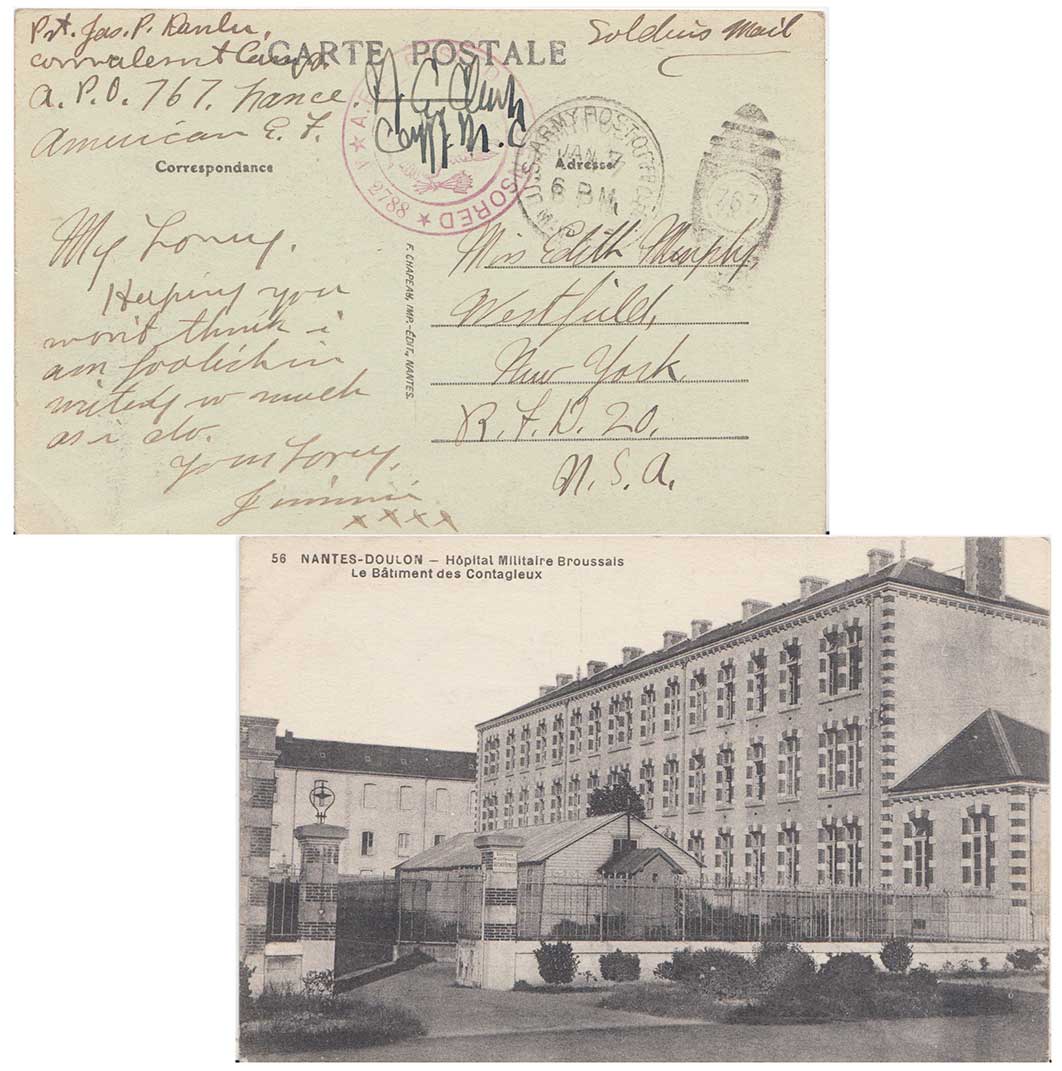 Pvt. Jas. P. Hanlu,
Soldiers Mail
CARTE POSTALE
Convalesent Camp.
A. P. O. 767. France.
American E. F.
Correspondance
Adresse
A.E.F. PASSED
CENSORED
A 2788
Capt. M. C.
U.S. ARMY POST OFFICE
JAN 7
6 PM
767
My Loney.
Hoping you
wont think i
am foolish in
writing so much
as i do.
Your Loney,
Jimmie
xxxx
F. CHAPEAU, IMP.-ÉDIT., NANTES.
Miss Edith Murphy,
Westfield,
New York
R. F. D. 20.
U. S. A.
56 NANTES-DOULON — Hôpital Militaire Broussais
Le Bâtiment des Contagieux